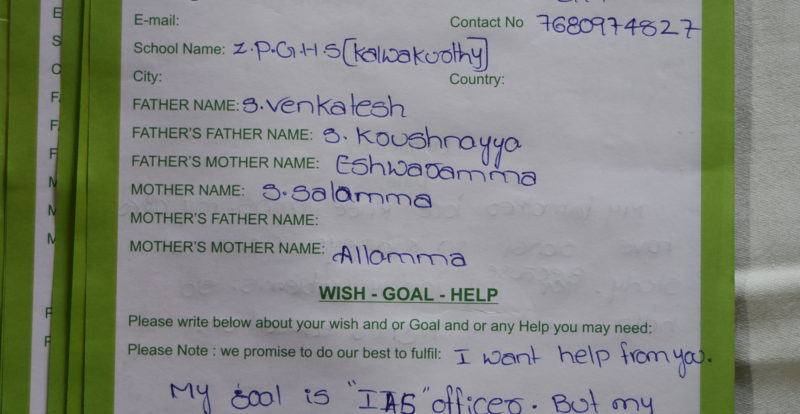 E-mail: Contact No 7680974827
School Name: Z.P.G.H.S [Kalwakurthy]
City: Country:
FATHER NAME: S. Venkatesh
FATHER'S FATHER NAME: S. Koushnayya
FATHER'S MOTHER NAME: Eshwaramma
MOTHER NAME: S. Salamma
MOTHER'S FATHER NAME:
MOTHER'S MOTHER NAME: Allamma
WISH - GOAL - HELP
Please write below about your wish and or Goal and or any Help you may need:
Please Note : we promise to do our best to fulfil: I want help from you.
My goal is "IAS" officer. But my